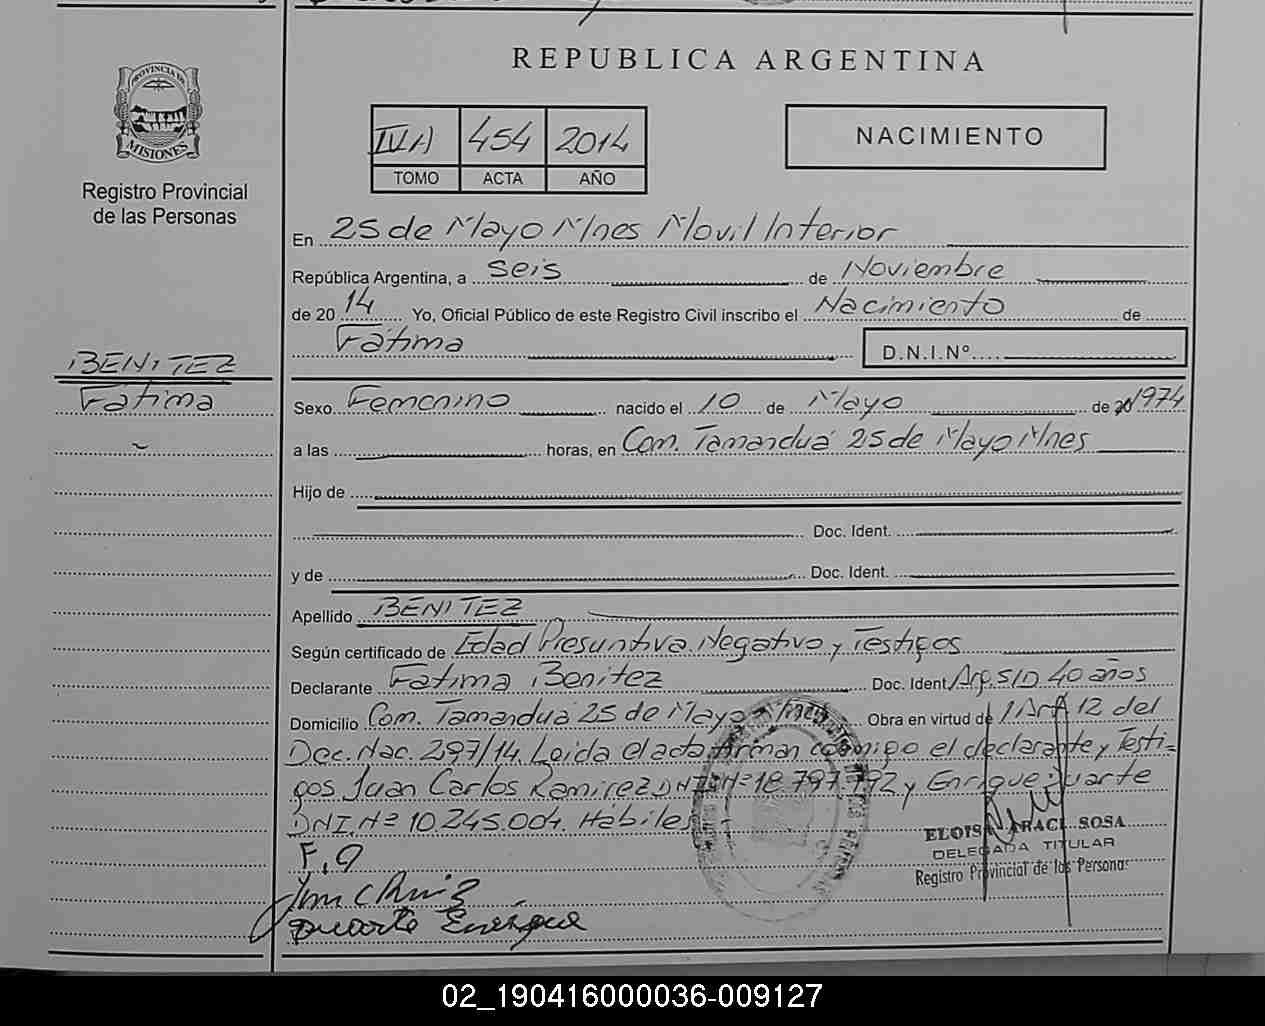 REPUBLICA ARGENTINA
PROVINCIA DE
MISIONES
Registro Provincial
de las Personas
IVA 454 2014
TOMO ACTA AÑO
NACIMIENTO
En 25 de Mayo Mnes Movil Interior
República Argentina, a seis de Noviembre
de 20 14 Yo, Oficial Público de este Registro Civil inscribo el Nacimiento de
Fátima D.N.I.Nº
BENITEZ
Fátima
Sexo Femenino nacido el 10 de Mayo de 1974
a las horas, en Com. Tamanduá 25 de Mayo Mnes
Hijo de
Doc. Ident.
y de Doc. Ident.
Apellido BENITEZ
Según certificado de Edad Presuntiva. Negativo y Testigos
Declarante Fátima Benitez Doc. Ident. Arg. S/D 40 años
Domicilio Com. Tamanduá 25 de Mayo Mnes Obra en virtud de / Art 12 del
Dec. Nac. 297/14. Leida el acta firman conmigo el declarante y Testi-
gos Juan Carlos Ramirez DNI Nº 18.797.792 y Enrique Duarte
DNI. Nº 10.245.004. Hábiles
F. 9
ELOISA ARACI SOSA
DELEGADA TITULAR
Registro Provincial de las Personas
Duarte Enrique
02_190416000036-009127